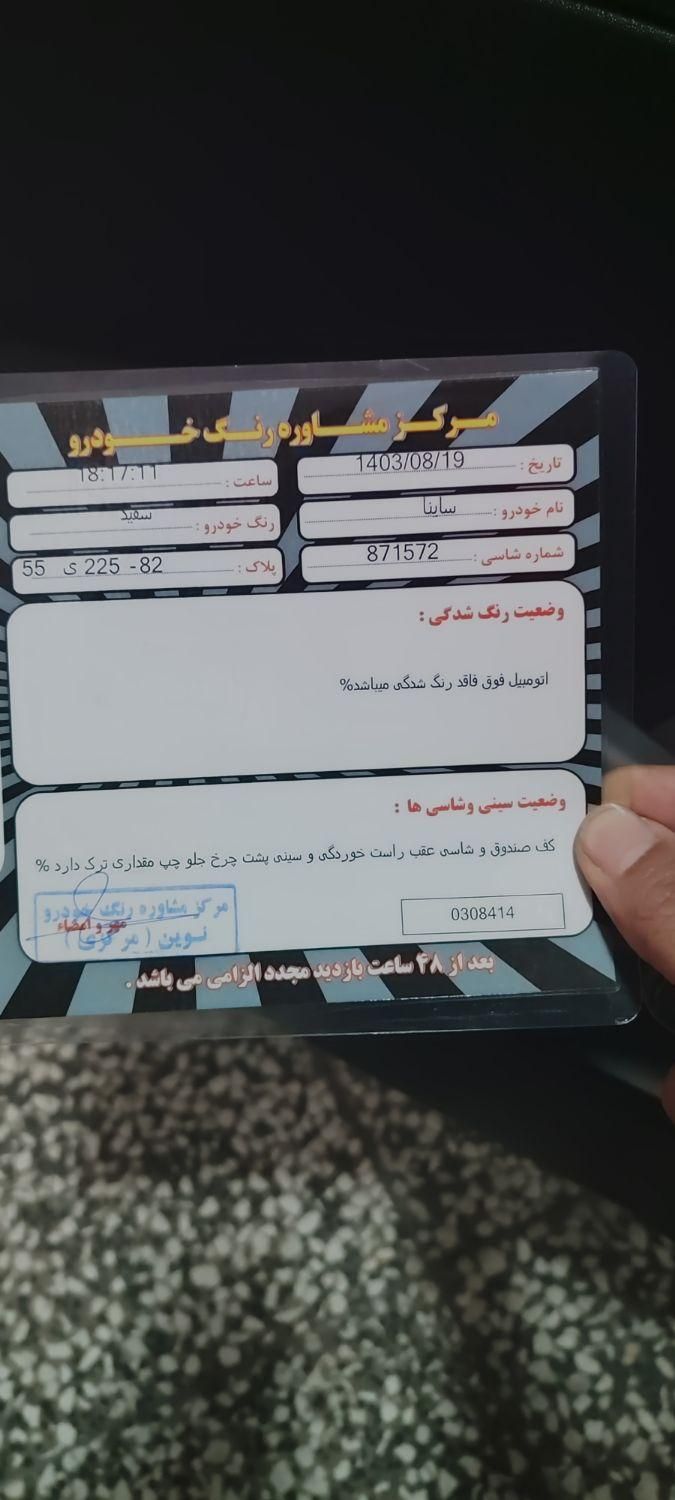 مرکز مشاوره رنگ خودرو
تاریخ : 1403/08/19
ساعت : 18:17:11
نام خودرو : ساینا
رنگ خودرو : سفید
شماره شاسی : 871572
پلاک : 55 ی 225 -82
وضعیت رنگ شدگی :
اتومبیل فوق فاقد رنگ شدگی میباشد%
وضعیت سینی وشاسی ها :
کف صندوق و شاسی عقب راست خوردگی و سینی پشت چرخ جلو چپ مقداری ترک دارد %
0308414
مرکز مشاوره رنگ خودرو
مهر و امضاء
نوین ( مرکزی )
بعد از ۴۸ ساعت بازدید مجدد الزامی می باشد .